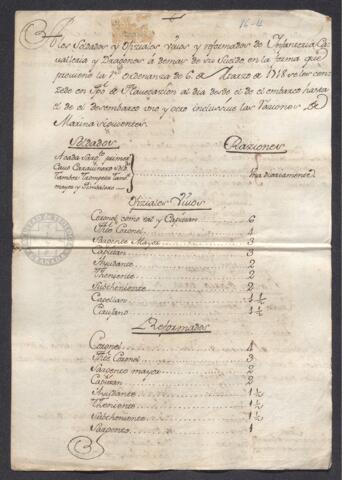 A los Soldados y Ofiziales Vivos y reformados de Infanteria Ca
valleria y Dragones à demas de su Sueldo en la forma que
previene la Rl ordenanza de 6 de Marzo de 1718 se les con
zede en tpo de Navegacion al dia desde el de el embarco hasta
el de el desembarco uno y otro inclusive las Raziones de
Marina siguientes
Soldados Raziones
Acada Sargto primer
Cavo Caravinero Sdo
Tambor Trompeta Tamr
mayor y Timbalero Una diariamente
Ofiziales Vivos
Coronel como tal y Capitan 6
Thte Coronel 4
Sargento Mayor 3
Capitan 3
Ayudante 2
Theniente 2
Subtheniente 2
Capellan 1½
Cirujano 1½
Reformados
Coronel 4
Thte Coronel 3
Sargento mayor 2
Capitan 2
Ayudante 1½
Theniente 1½
Subtheniente 1½
Sargento 1